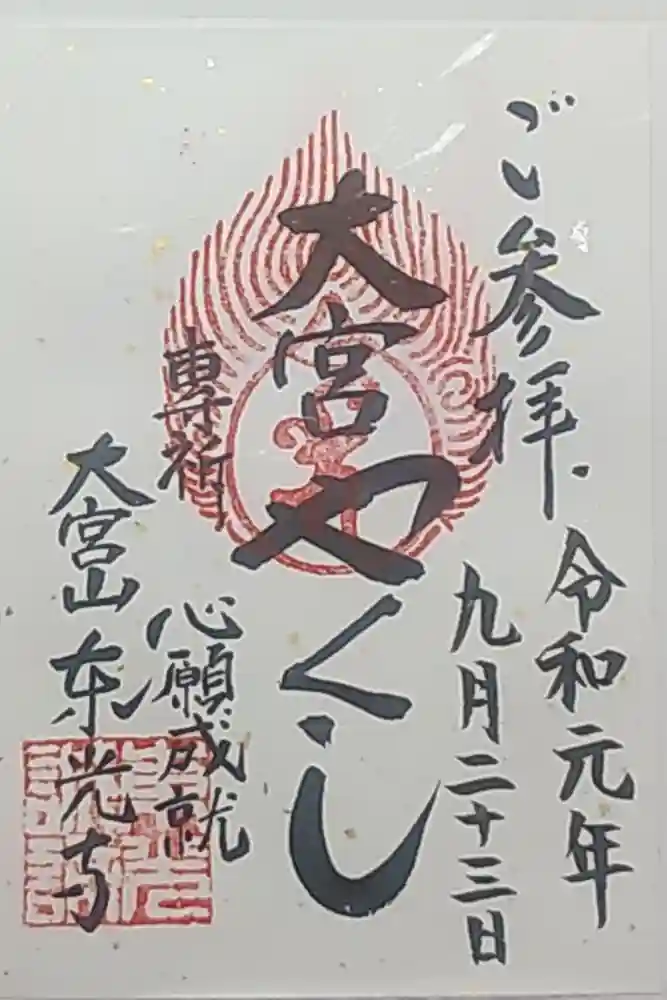 ご参拝
令和元年
九月二十三日
大宮やくし
専祈
心願成就
大宮山东光寺